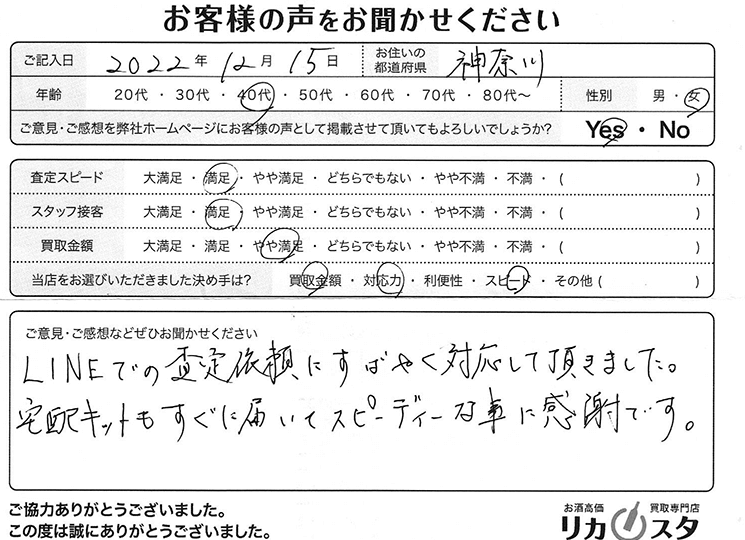 お客様の声をお聞かせください
ご記入日 2022年 12月 15日 お住いの都道府県 神奈川
年齢 20代・30代・40代・50代・60代・70代・80代〜 性別 男・女
ご意見・ご感想を弊社ホームページにお客様の声として掲載させて頂いてもよろしいでしょうか? Yes・No
査定スピード 大満足・満足・やや満足・どちらでもない・やや不満・不満・( )
スタッフ接客 大満足・満足・やや満足・どちらでもない・やや不満・不満・( )
買取金額 大満足・満足・やや満足・どちらでもない・やや不満・不満・( )
当店をお選びいただきました決め手は? 買取金額・対応力・利便性・スピード・その他( )
ご意見・ご感想などぜひお聞かせください
LINEでの査定依頼にすばやく対応して頂きました。
宅配キットもすぐに届いてスピーディーな事に感謝です。
ご協力ありがとうございました。
この度は誠にありがとうございました。
お酒高価 買取専門店
リカスタ